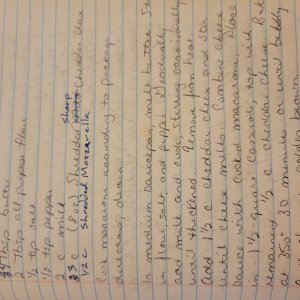 3 4 Tbsp butter
2 Tbsp all purpose flour
1/2 tsp salt
1/4 tsp pepper
2 c milk
2 3 c (8 oz) Shredded Sharp Cheddar Chee
1/2 c Shredded Mozzarella
Cook macaroni according to package
directions; drain
In medium saucepan, melt butter. St
in flour, salt and pepper. Gradually
add milk and cook stirring occasionally
until thickened. Remove from heat.
Add 1 1/2 c cheddar cheese and stir
until cheese melts. Combine cheese
sauce with cooked macaroni. Place
in 1 1/2 quart casserole, top with
remaining 1/2 c cheddar cheese. Bak
at 350° 30 minutes or until bubbly
golden brown